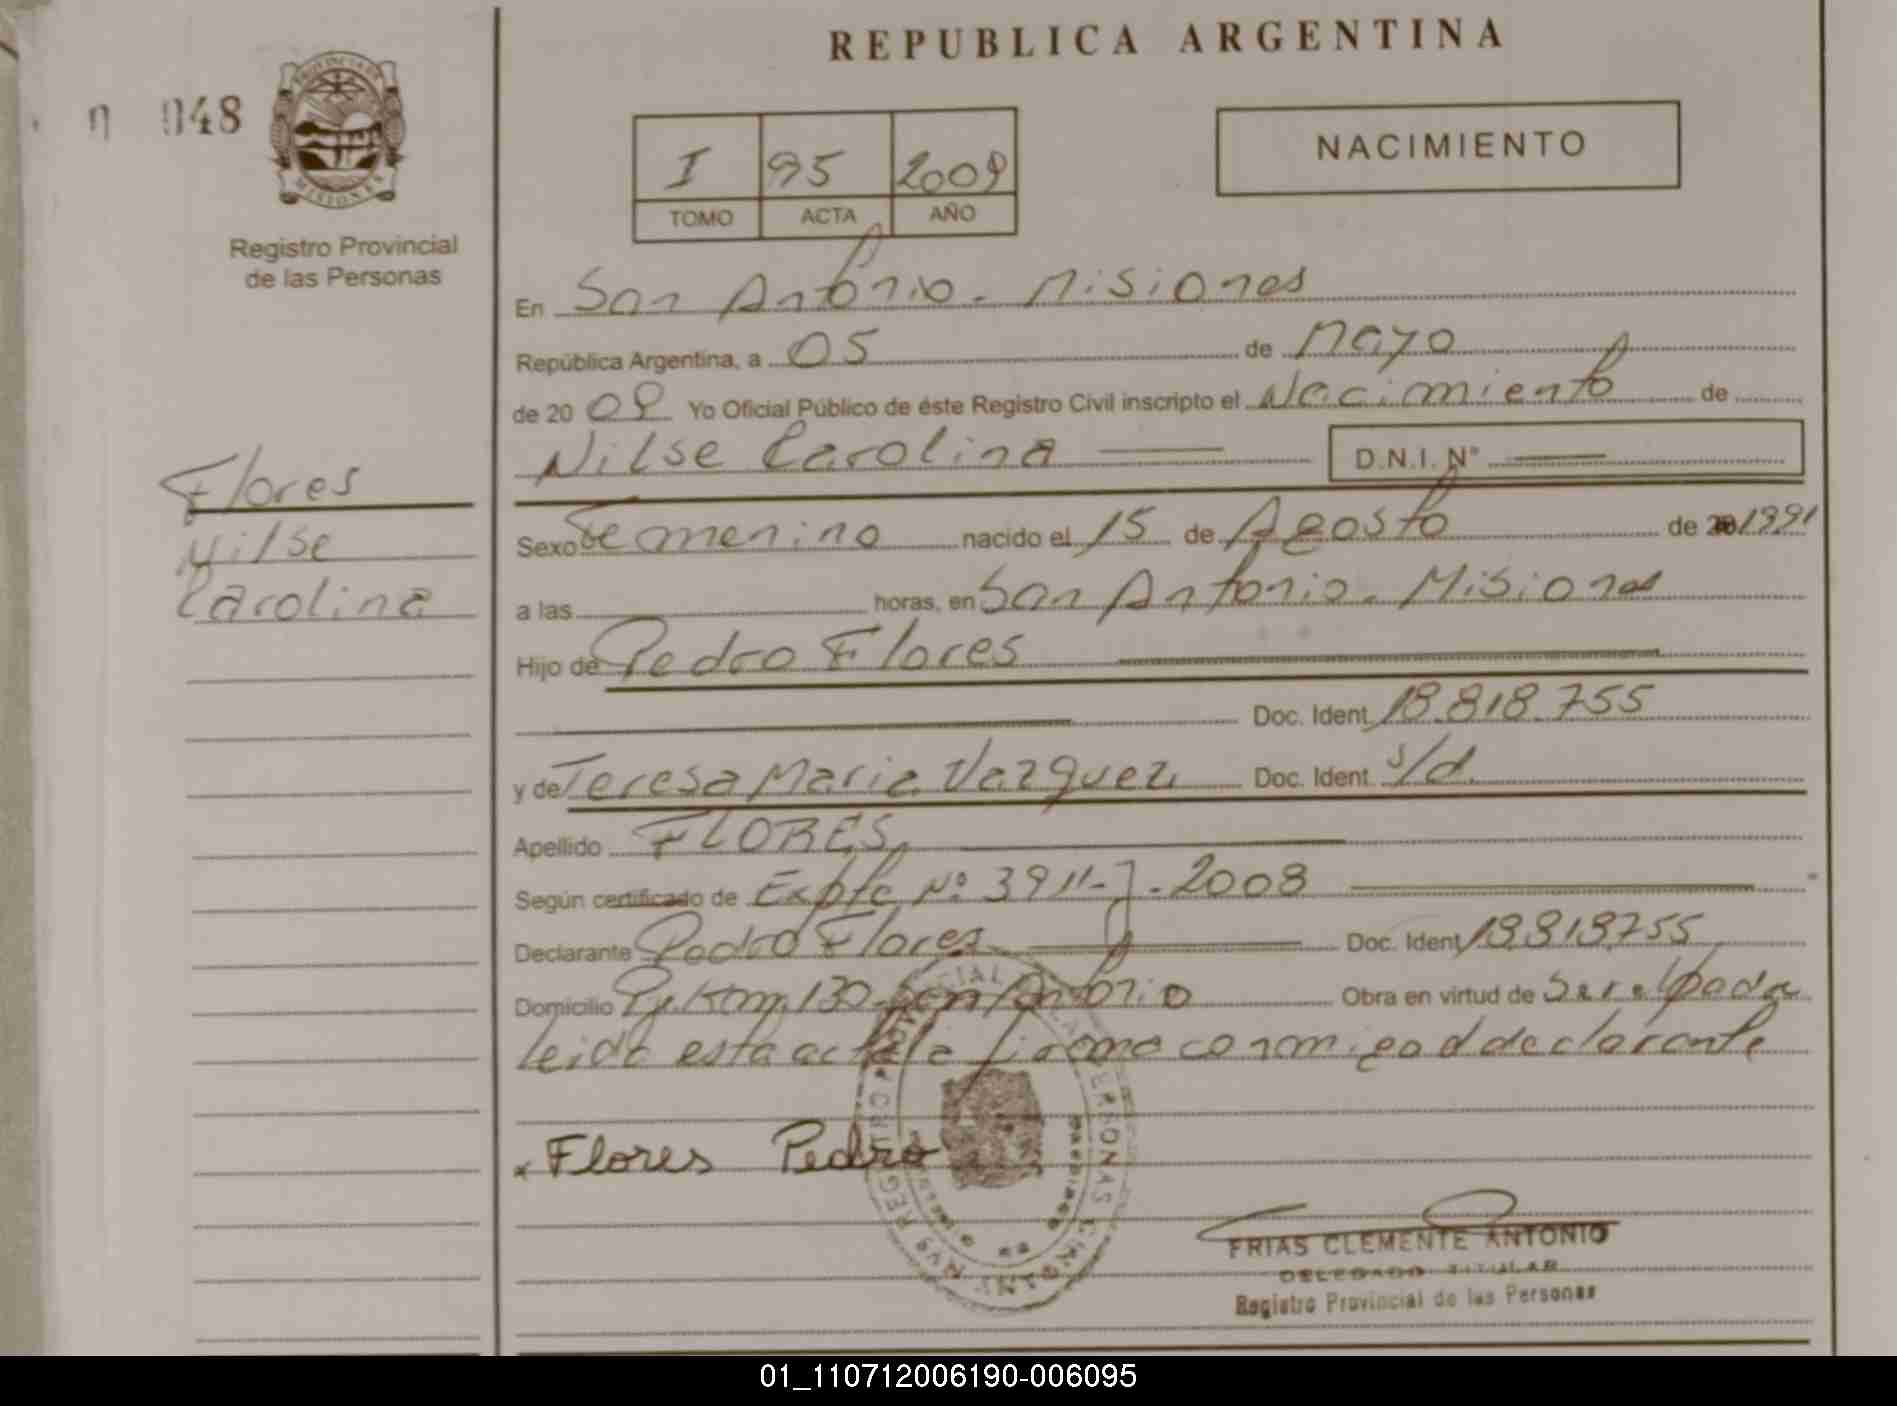 REPUBLICA ARGENTINA
048
PROVINCIA DE
MISIONES
Registro Provincial
de las Personas
I 95 2009
TOMO ACTA AÑO
NACIMIENTO
En San Antonio - Misiones
República Argentina, a 05 de Mayo
de 20 09 Yo Oficial Público de éste Registro Civil inscripto el Nacimiento de
Nilse Carolina D.N.I. N°
Flores
Nilse
Carolina
Sexo Femenino nacido el 15 de Agosto de 1991
a las horas, en San Antonio - Misiones
Hijo de Pedro Flores
Doc. Ident. 18.818.755
y de Teresa Maria Vazquez Doc. Ident. s/d.
Apellido FLORES
Según certificado de Expte Nº 3911-J-2008
Declarante Pedro Flores Doc. Ident 18818755
Domicilio Km. 130 San Antonio Obra en virtud de Ser el padre
leida esta acta la firma conmigo el declarante
x Flores Pedro
FRIAS CLEMENTE ANTONIO
DELEGADO TITULAR
Registro Provincial de las Personas
01_110712006190-006095